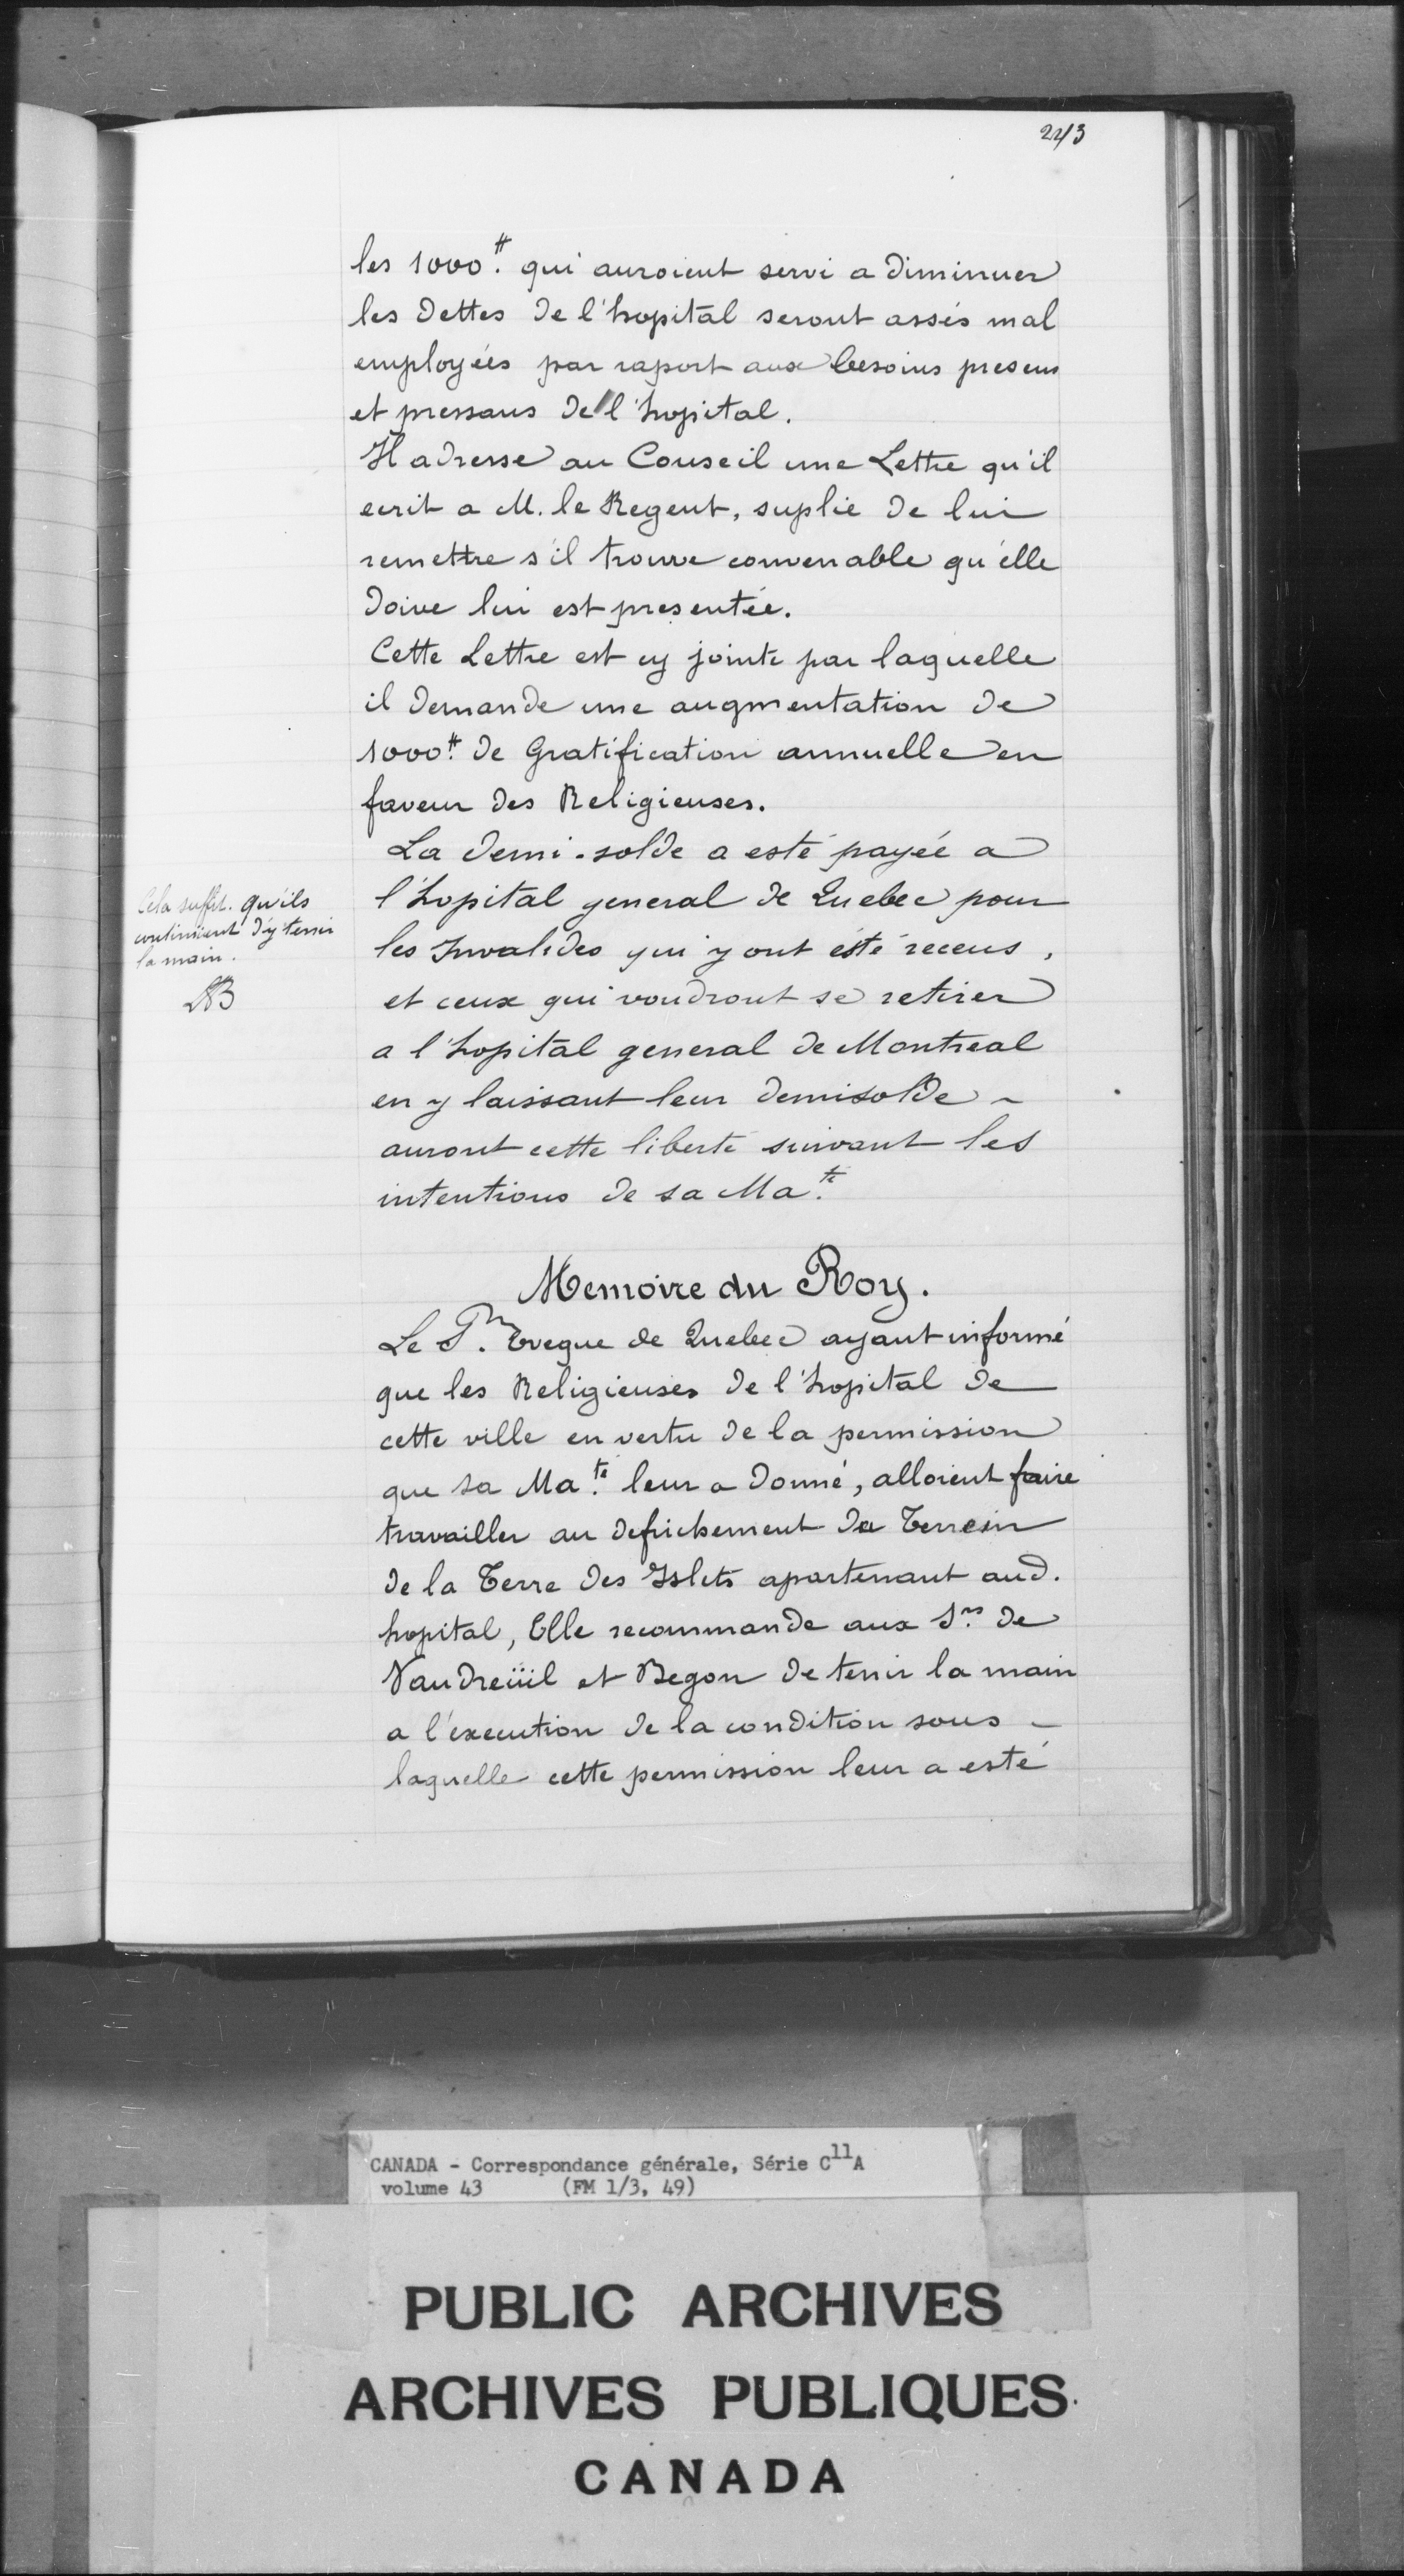 243
les 1000.# qui auroient servi a diminuer
les dettes de l'hopital seront assés mal
employées par raport aux besoins presens
et pressans de l'hopital.
Il adresse au Conseil une Lettre qu'il
ecrit a M. le Regent, suplie de lui
remettre s'il trouve convenable qu'elle
doive lui est presentée.
Cette Lettre est cy jointe par laquelle
il demande une augmentation de
1000.# de Gratification annuelle en
faveur des Religieuses.
La demi-solde a esté payée a
l'hopital general de Quebec pour
les Invalides qui y ont esté receus,
et ceux qui voudront se retirer
a l'hopital general de Montreal
en y laissant leur demisolde ~
auront cette liberté suivant les
intentions de sa Ma.té
Cela suffit. qu'ils
continuent d'y tenir
la main.
LB
Memoire du Roy.
Le S.r Eveque de Quebec ayant informé
que les Religieuses de l'hopital de
cette ville en vertu de la permission
que sa Ma.té leur a donné, alloient faire
travailler au defrichement du Terrein
de la Terre des Islets apartenant aud.
hopital, Elle recommande aux S.rs de
Vaudreüil et Begon de tenir la main
a l'execution de la condition sous -
laquelle cette permission leur a esté
CANADA - Correspondance générale, Série C11A
volume 43 (FM 1/3, 49)
PUBLIC ARCHIVES
ARCHIVES PUBLIQUES
CANADA